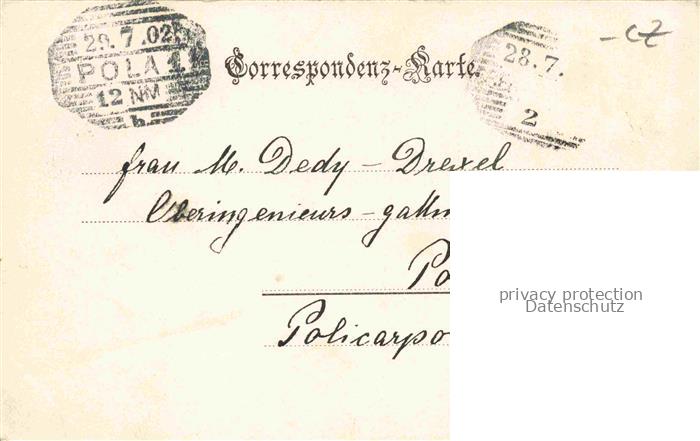 29.7.02
POLA 1
12 NM
b
Correspondenz-Karte.
28.7.
2
Frau M. Dedy – Drexel
Oberingenieurs – gattin
Po
Policarpo
privacy protection
Datenschutz